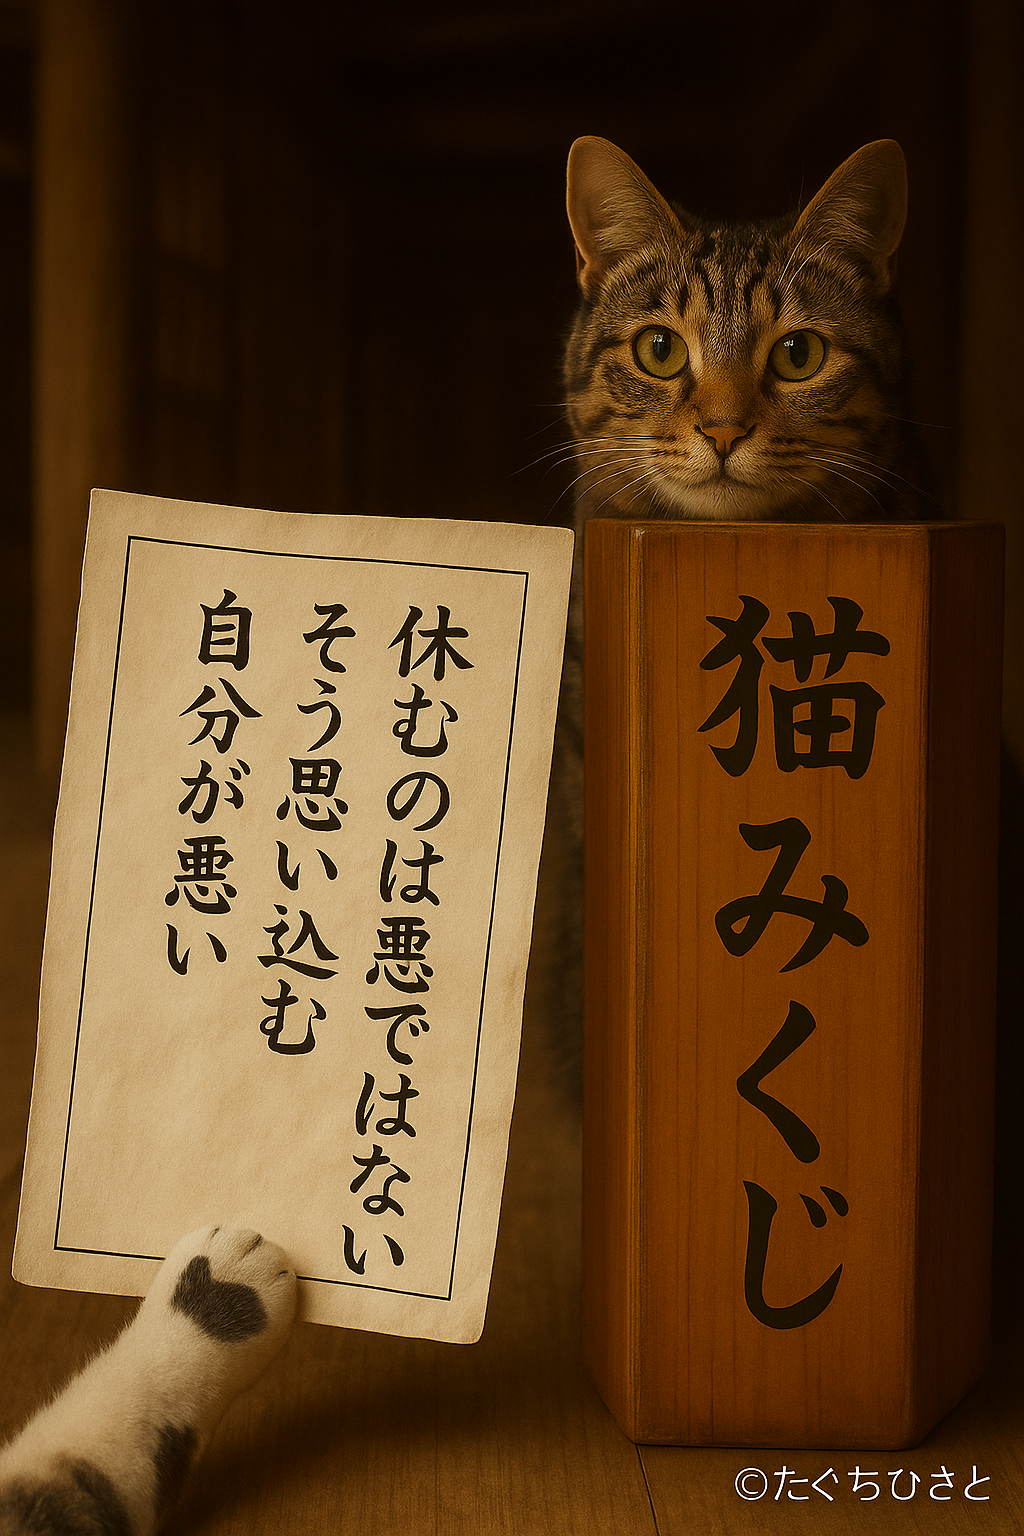 休むのは悪ではない
そう思い込む
自分が悪い
猫みくじ
©たぐちひさと